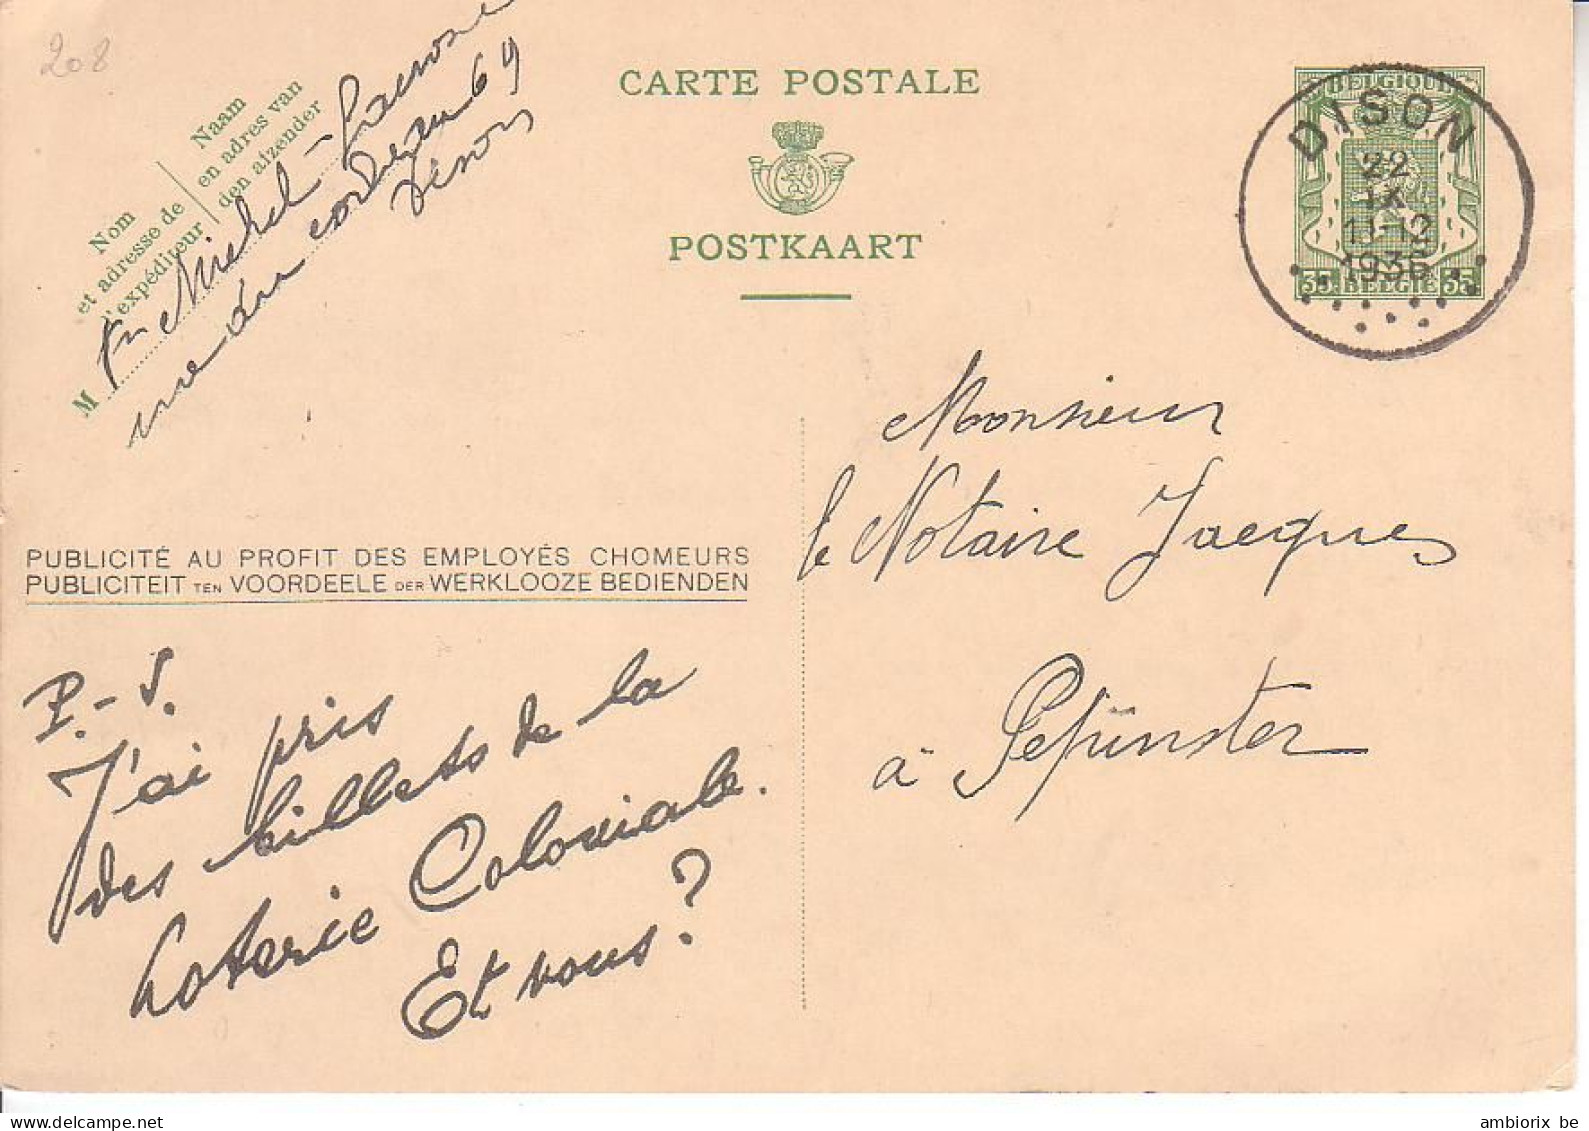 208
CARTE POSTALE
POSTKAART
Nom
et adresse de
l'expéditeur
Naam
en adres van
den afzender
M
Michel-
rue du 69
Dison
BELGIQUE
35 BELGIE 35
DISON
22
IX
11-12
1936
Monsieur
le Notaire Jacques
à Pepinster
PUBLICITÉ AU PROFIT DES EMPLOYÉS CHOMEURS
PUBLICITEIT TEN VOORDEELE DER WERKLOOZE BEDIENDEN
P.-S.
J'ai pris
des billets de la
Loterie Coloniale.
Et vous?
ambiorix be